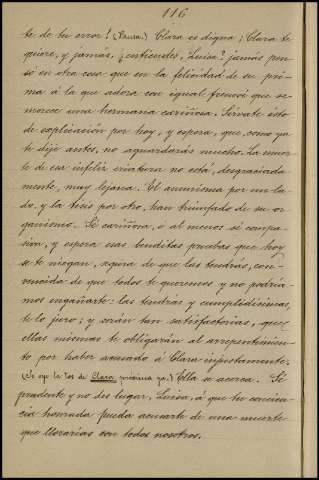 116
te de tu error! (Pausa.) Clara es digna; Clara te
quiere, y jamás, ¿entiendes, Luisa? jamás pen-
só en otra cosa que en la felicidad de su pri-
ma á la que adora con igual frenesí que se
merece una hermana cariñosa. Sírvate ésto
de explicación por hoy, y espera, que, como ya
te dije antes, no aguardarás mucho. La muer-
te de esa infeliz criatura no está, desgraciada
mente, muy lejana. El aneurisma por un la-
do, y la tisis por otro, han triunfado de su or
ganismo. Sé cariñosa, ó al menos sé compa-
siva, y espera esas benditas pruebas que hoy
se te niegan, segura de que las tendrás, con-
vencida de que todos te queremos y no podría-
mos engañarte: las tendrás y cumplidísimas,
te lo juro; y serán tan satisfactorias, que
ellas mismas te obligarán al arrepentimien-
to por haber acusado á Clara injustamente.
(Se oye la tos de Clara, próxima ya.) Ella se acerca. Sé
prudente y no des lugar, Luisa, á que tu concien-
cia honrada pueda acusarte de una muerte
que llorarías con todos nosotros.